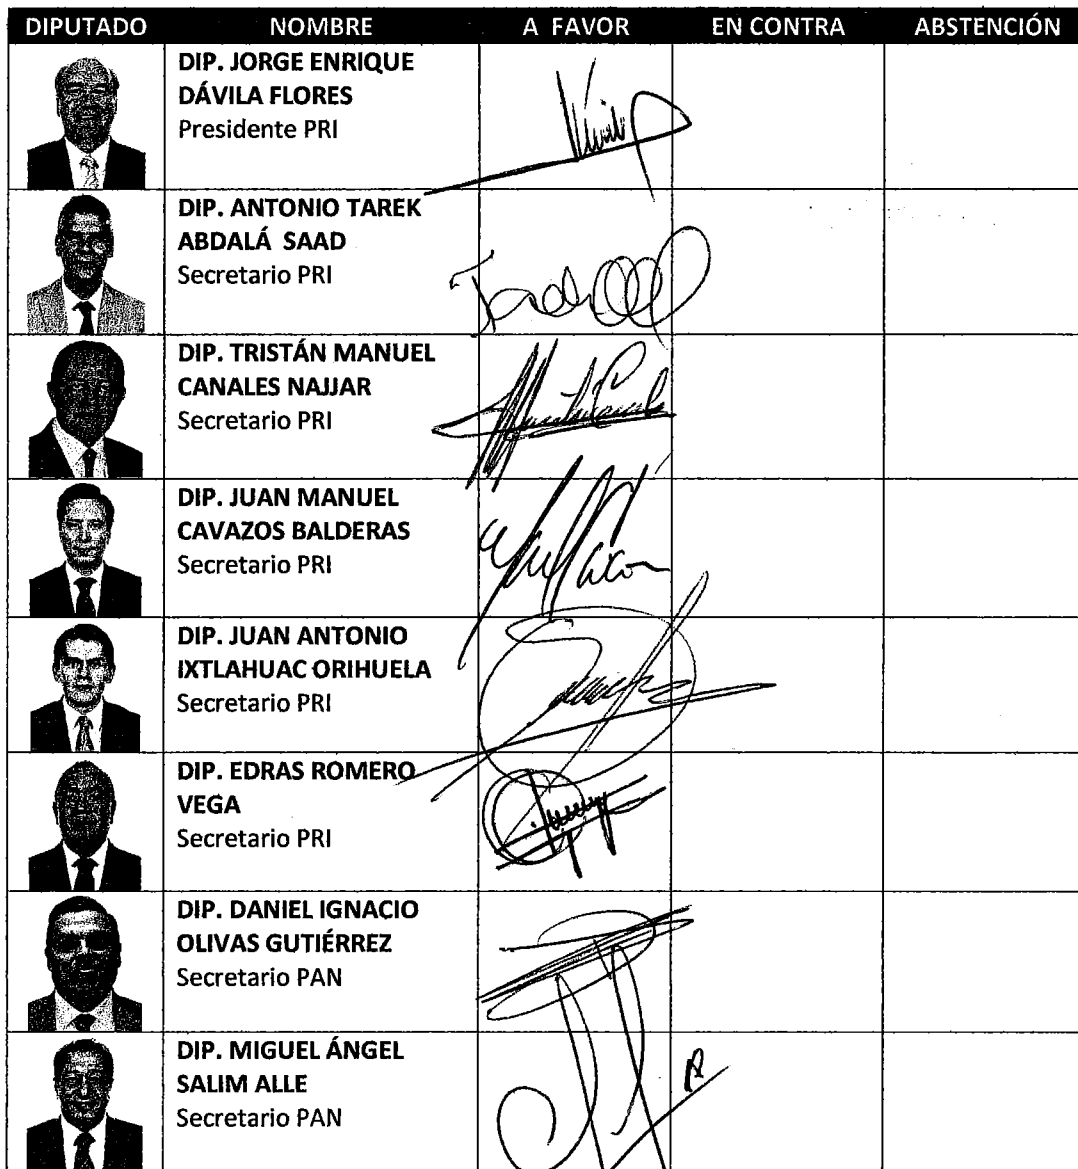 DIPUTADO NOMBRE A FAVOR EN CONTRA ABSTENCIÓN
DIP. JORGE ENRIQUE
DÁVILA FLORES
Presidente PRI
DIP. ANTONIO TAREK
ABDALÁ SAAD
Secretario PRI
DIP. TRISTÁN MANUEL
CANALES NAJJAR
Secretario PRI
DIP. JUAN MANUEL
CAVAZOS BALDERAS
Secretario PRI
DIP. JUAN ANTONIO
IXTLAHUAC ORIHUELA
Secretario PRI
DIP. EDRAS ROMERO
VEGA
Secretario PRI
DIP. DANIEL IGNACIO
OLIVAS GUTIÉRREZ
Secretario PAN
DIP. MIGUEL ÁNGEL
SALIM ALLE
Secretario PAN